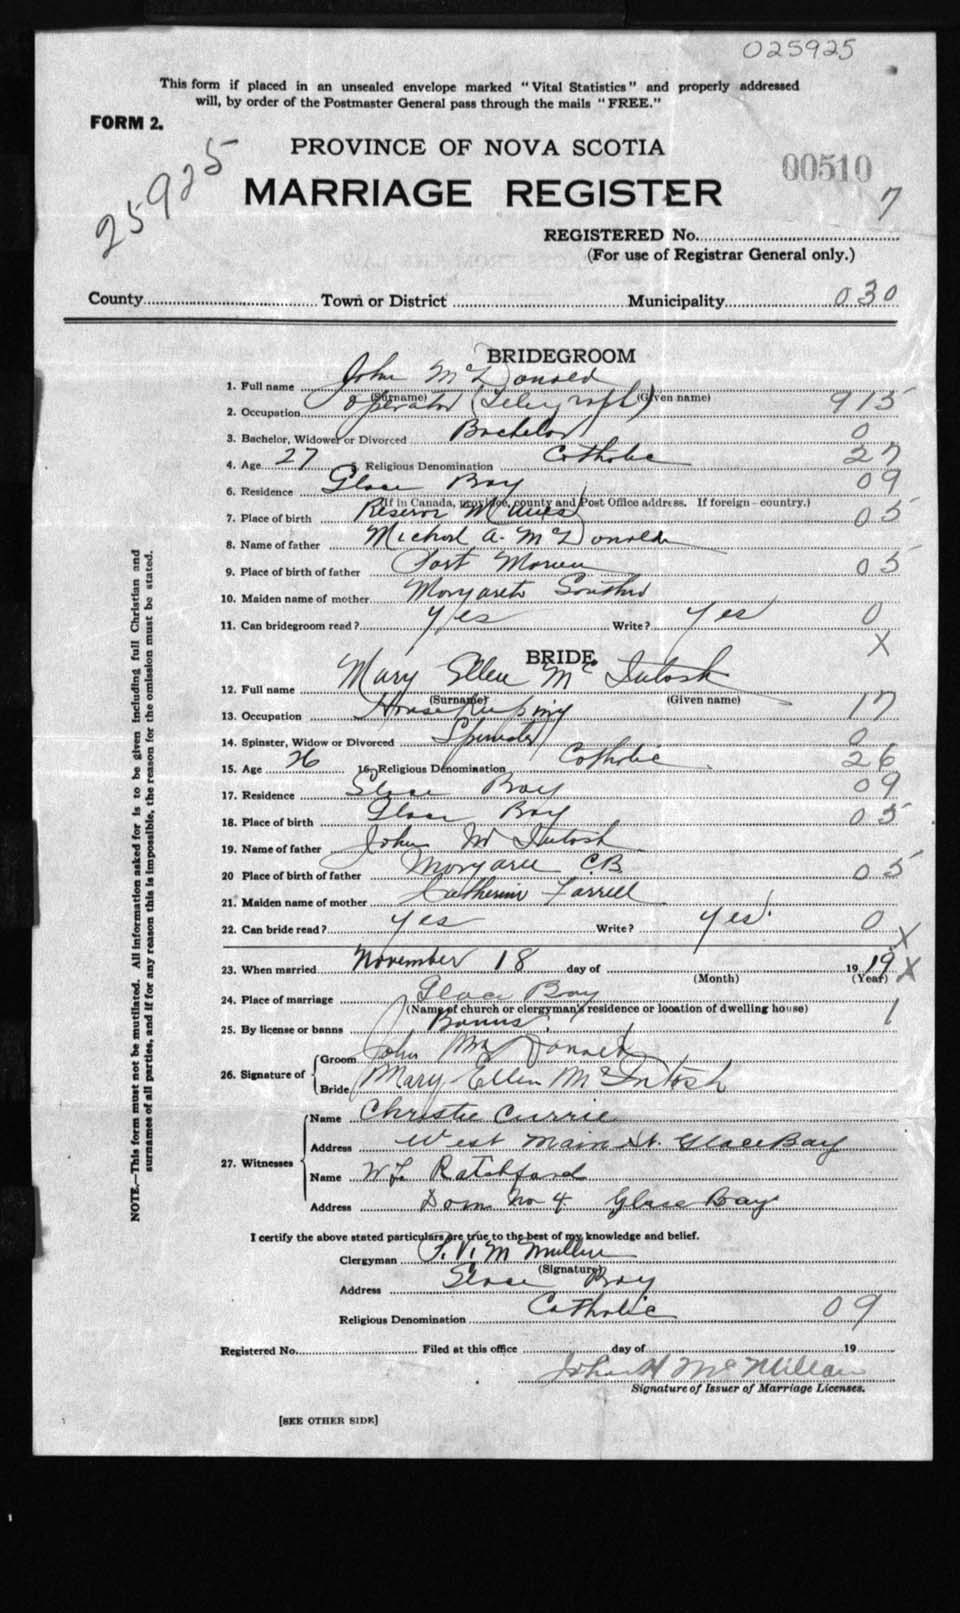 025925
This form if placed in an unsealed envelope marked "Vital Statistics" and properly addressed
will, by order of the Postmaster General pass through the mails "FREE."
FORM 2.
25925
PROVINCE OF NOVA SCOTIA
00510
MARRIAGE REGISTER
7
REGISTERED No.
(For use of Registrar General only.)
County Town or District Municipality 030
BRIDEGROOM
1. Full name John McDonald
(Surname) (Given name)
2. Occupation Operator (Telegraph) 915
3. Bachelor, Widower or Divorced Bachelor 0
4. Age 27 5. Religious Denomination Catholic 27
6. Residence Glace Bay 09
(If in Canada, province, county and Post Office address. If foreign—country.)
7. Place of birth Reserve Mines 05
8. Name of father Michael A. McDonald
9. Place of birth of father Port Morien 05
10. Maiden name of mother Margaret
11. Can bridegroom read? Yes Write? Yes 0
X
BRIDE
12. Full name Mary Ellen McIntosh
(Surname) (Given name)
13. Occupation Housekeeping 17
14. Spinster, Widow or Divorced Spinster 0
15. Age 26 16. Religious Denomination Catholic 26
17. Residence Glace Bay 09
18. Place of birth Glace Bay 05
19. Name of father John McIntosh
20 Place of birth of father Margaree C.B. 05
21. Maiden name of mother Catherine Farrell
22. Can bride read? Yes Write? Yes. 0
X
23. When married November 18 day of 1919 X
(Month) (Year)
24. Place of marriage Glace Bay
(Name of church or clergyman's residence or location of dwelling house) 1
25. By license or banns Banns
26. Signature of Groom John McDonald
Bride Mary Ellen McIntosh
27. Witnesses Name Christie Currie
Address West Main St. Glace Bay
Name W L Ratchford
Address Dom No 4. Glace Bay
I certify the above stated particulars are true to the best of my knowledge and belief.
Clergyman McMullin
(Signature)
Address Glace Bay
Religious Denomination Catholic 09
Registered No. Filed at this office day of 19
John H McMillan
Signature of Issuer of Marriage Licenses.
[SEE OTHER SIDE]
NOTE.—This form must not be mutilated. All information asked for is to be given including full Christian and
surnames of all parties, and if for any reason this is impossible, the reason for the omission must be stated.